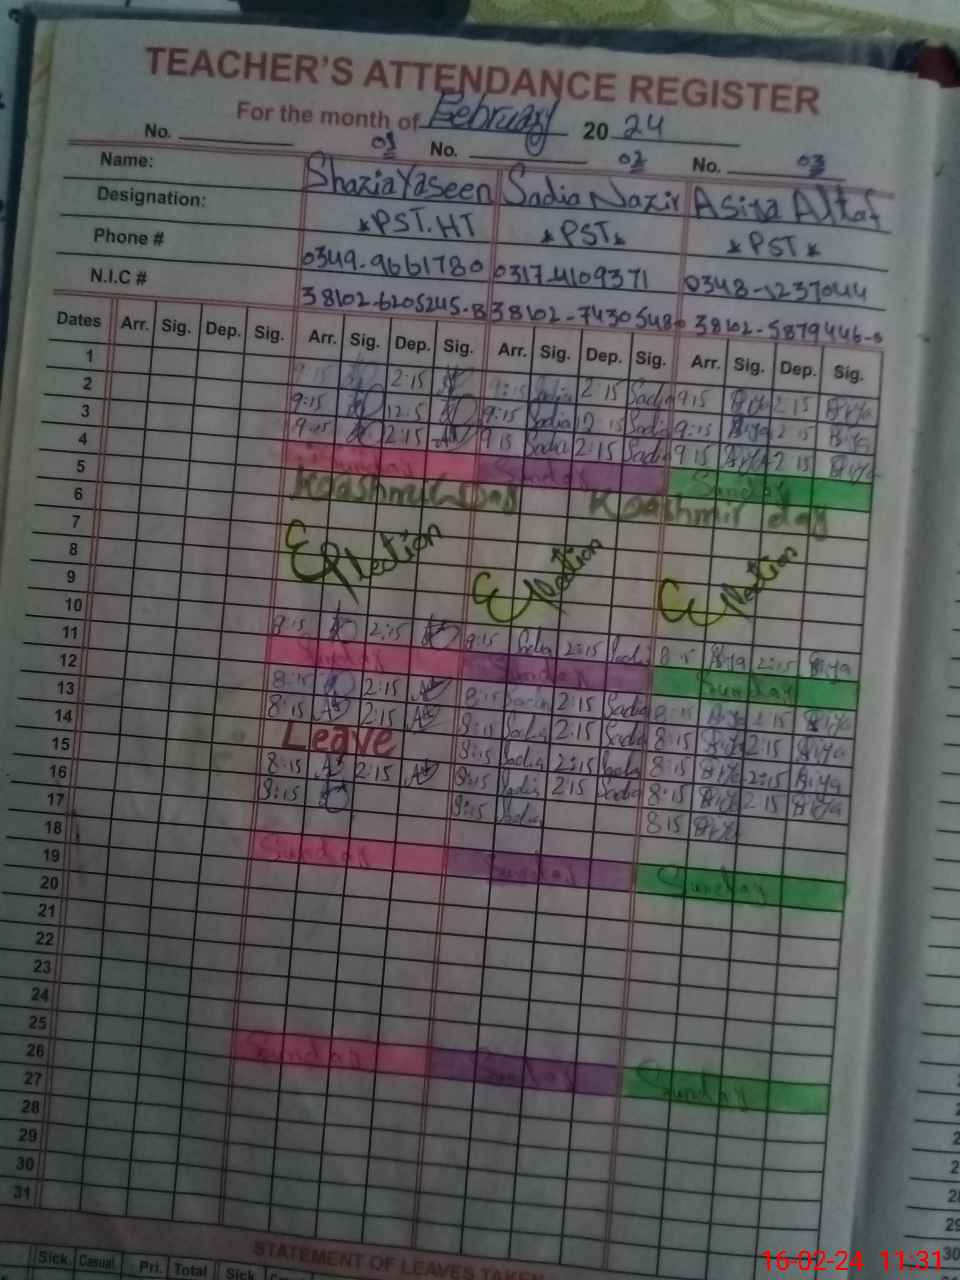 TEACHER'S ATTENDANCE REGISTER
For the month of February 2024
No. 01 No. 02 No. 03
Name: Shazia Yaseen Sadia Nazir Asiya Altaf
Designation: *PST.HT *PST* *PST*
Phone # 0349-9661780 0317-4109371 0348-1237044
N.I.C # 38102-6205245-8 38102-7430548- 38102-5879446-
Dates Arr. Sig. Dep. Sig. Arr. Sig. Dep. Sig. Arr. Sig. Dep. Sig. Arr. Sig. Dep. Sig.
1 9:15 2:15 9:15 Sadia 2:15 Sadia 9 15 2 15
2 9:15 12:15 9:15 Sadia 12 15 Sadia 9:15
3 9:15 2:15 9 15 Sadia 2:15 Sadia 9 15 2 15
4 Sunday Sunday Sunday
5 Kaashmir Day Kaashmir day
6
7 Election Election Election
8
9
10 9:15 2:15 9:15 Sadia 2:15 Sadia 8 15 2:15
11 Sunday Sunday Sunday
12 8:15 2:15 8:15 Sadia 2:15 Sadia 8:15 2:15
13 8:15 2:15 8:15 Sadia 2:15 Sadia 8:15 2:15
14 Leave 8:15 Sadia 2:15 Sadia 8:15 2:15
15 8:15 2:15 8:15 Sadia 2:15 Sadia 8:15 2 15
16 8:15 8:15 Sadia 8 15
17
18 Sunday Sunday Sunday
19
20
21
22
23
24
25 Sunday Sunday Sunday
26
27
28
29
30
31
STATEMENT OF LEAVES TAKEN
Sick Casual Pri. Total Sick
16-02-24 11:31